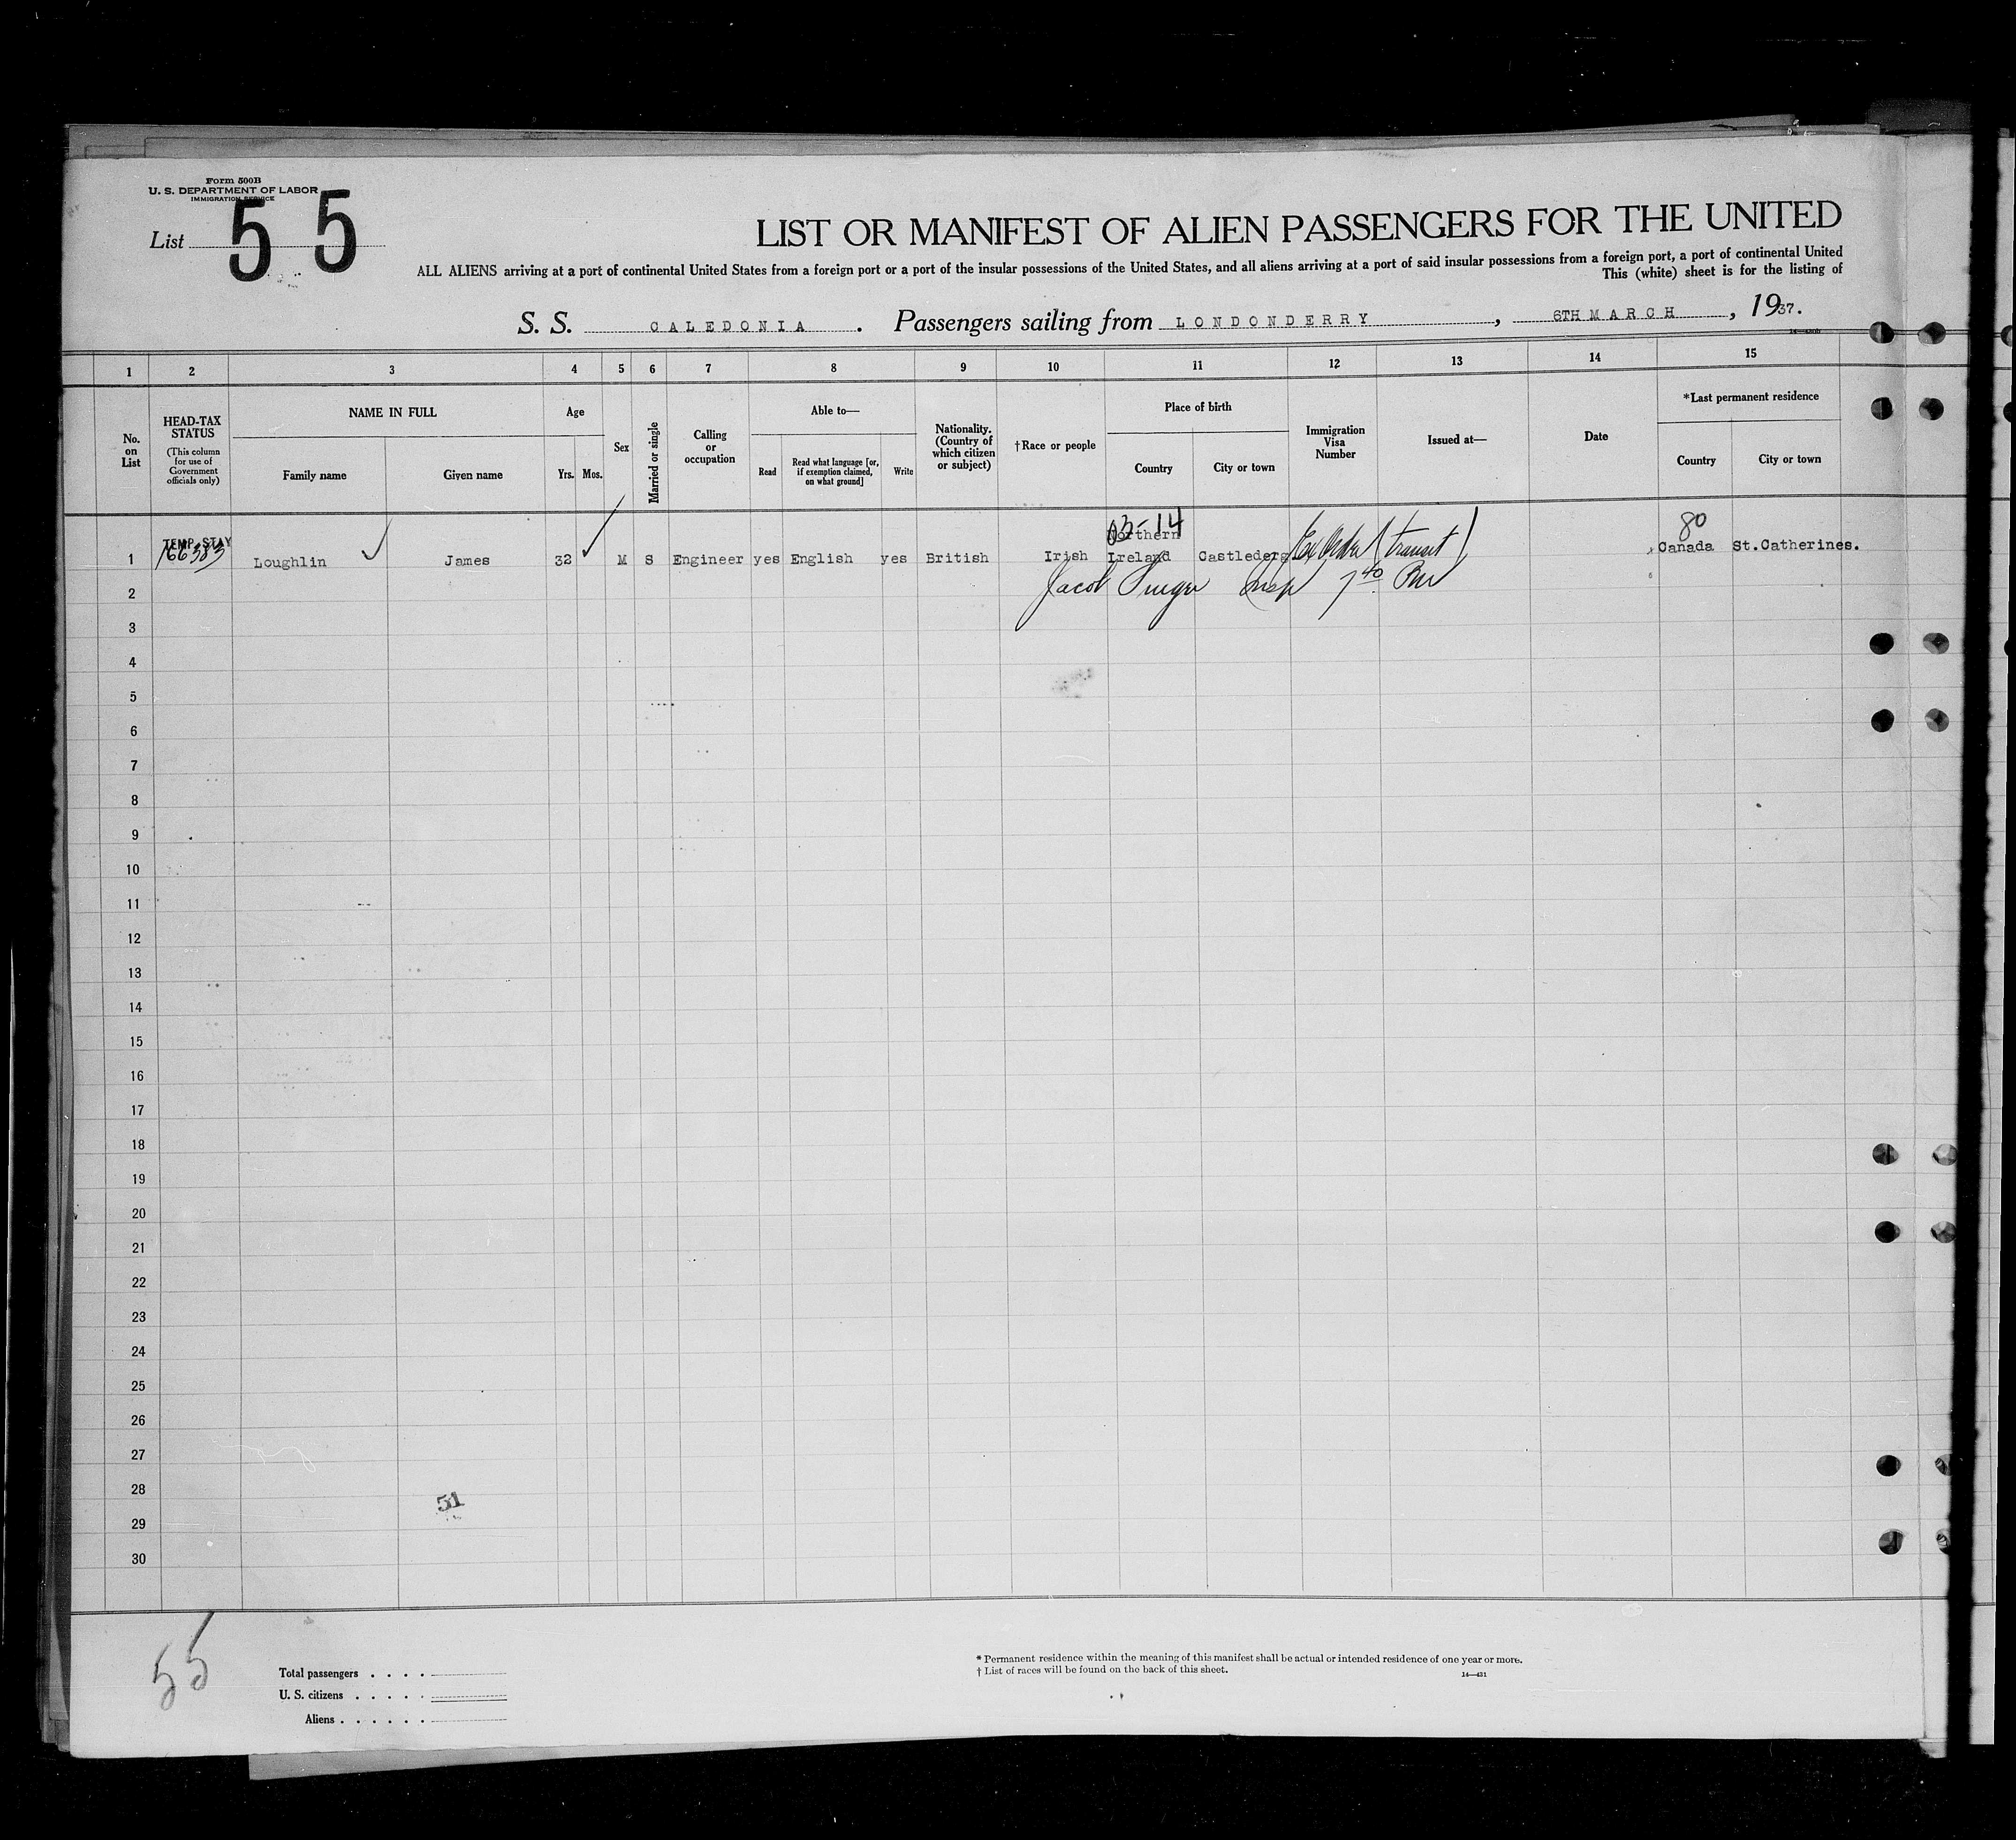 Form 500B
U. S. DEPARTMENT OF LABOR
IMMIGRATION SERVICE
List 5 5
LIST OR MANIFEST OF ALIEN PASSENGERS FOR THE UNITED
ALL ALIENS arriving at a port of continental United States from a foreign port or a port of the insular possessions of the United States, and all aliens arriving at a port of said insular possessions from a foreign port, a port of continental United
This (white) sheet is for the listing of
S. S. CALEDONIA. Passengers sailing from LONDONDERRY, 6TH MARCH, 1937.
1 2 3 4 5 6 7 8 9 10 11 12 13 14 15
No. on List
HEAD-TAX STATUS
(This column for use of Government officials only)
NAME IN FULL
Family name
Given name
Age
Yrs. Mos.
Sex
Married or single
Calling or occupation
Able to—
Read
Read what language [or, if exemption claimed, on what ground]
Write
Nationality. (Country of which citizen or subject)
†Race or people
Place of birth
Country
City or town
Immigration Visa Number
Issued at—
Date
*Last permanent residence
Country
City or town
03-14
80
TEMP STAY
Northern
1 166383 Loughlin James 32 M S Engineer yes English yes British Irish Ireland Castlederg Ex Order (transit) Canada St.Catherines.
2 Jacob Insp
3
4
5
6
7
8
9
10
11
12
13
14
15
16
17
18
19
20
21
22
23
24
25
26
27
28
51
29
30
55
Total passengers . . . .
U. S. citizens . . . . .
Aliens . . . . . .
* Permanent residence within the meaning of this manifest shall be actual or intended residence of one year or more.
† List of races will be found on the back of this sheet.
14—431